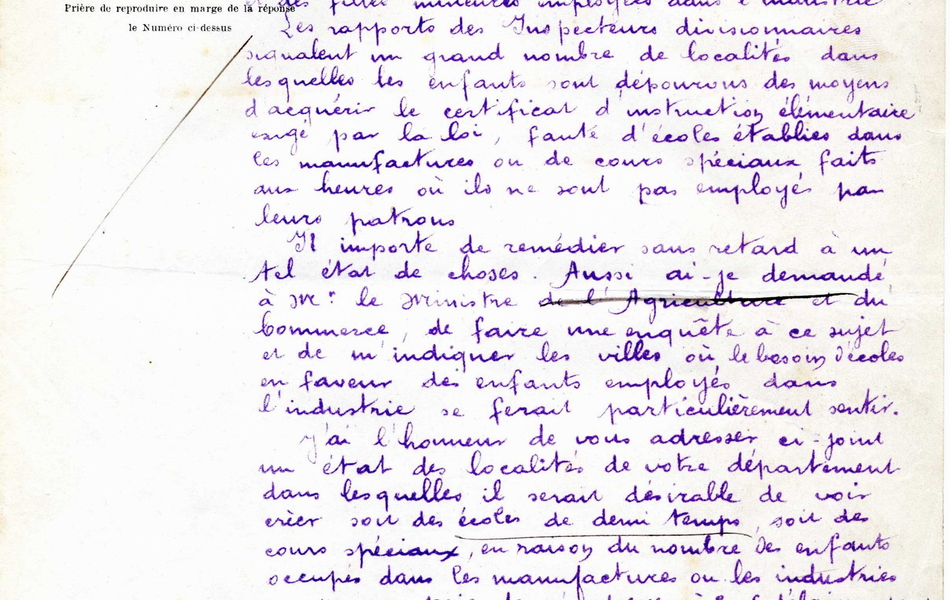 Prière de reproduire en marge de la réponse
le Numéro ci-dessus
des filles mineures employées dans l'industrie
Les rapports des Inspecteurs divisionnaires
signalent un grand nombre de localités dans
lesquelles les enfants sont dépourvus des moyens
d'acquérir le certificat d'instruction élémentaire
exigé par la loi, faute d'écoles établies dans
les manufactures ou de cours spéciaux faits
aux heures où ils ne sont pas employés par
leurs patrons
Il importe de remédier sans retard à un
tel état de choses. Aussi ai-je demandé
à Mr. le Ministre de l'Agriculture et du
Commerce, de faire une enquête à ce sujet
et de m'indiquer les villes où le besoin d'écoles
en faveur des enfants employés dans
l'industrie se ferait particulièrement sentir.
J'ai l'honneur de vous adresser ci-joint
un état des localités de votre département
dans lesquelles il serait désirable de voir
créer soit des écoles de demi temps, soit des
cours spéciaux, en raison du nombre des enfants
occupés dans les manufactures ou les industries